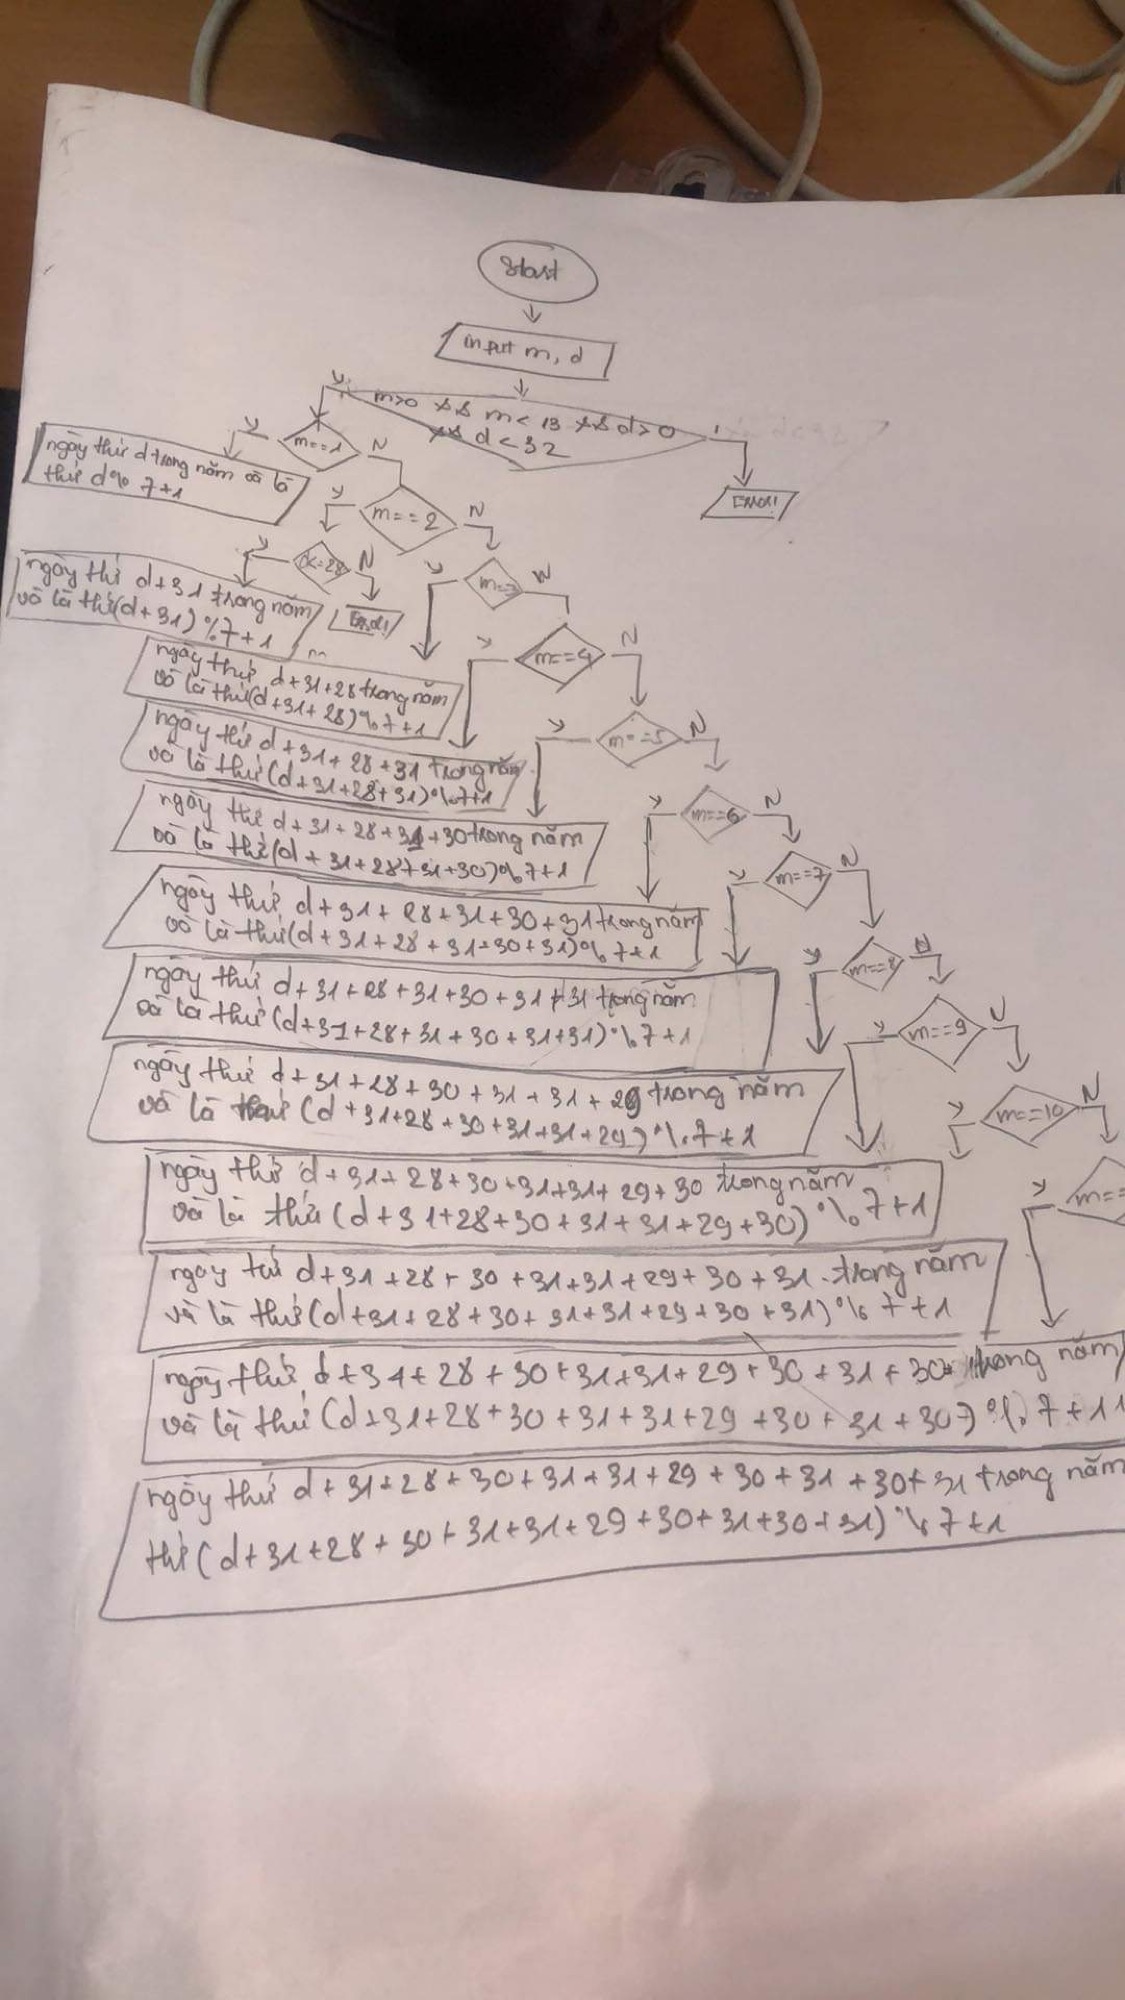 Start
input m, d
m>0 && m < 13 && d > 0
&& d < 32
Y
Error!
m==1
Y
N
ngày thứ d trong năm và là
thứ d% 7+1
m==2
Y
N
d<=28
Y
N
Error!
ngày thứ d+31 trong năm
và là thứ(d+31) %7+1
m==3
Y
N
ngày thứ d+31+28 trong năm
và là thứ(d+31+28)%7+1
m==4
Y
N
ngày thứ d+31+28+31 trong năm
và là thứ(d+31+28+31)%7+1
m==5
Y
N
ngày thứ d+31+28+31+30 trong năm
và là thứ(d+31+28+31+30)%7+1
m==6
Y
N
ngày thứ d+31+28+31+30+31 trong năm
và là thứ(d+31+28+31+30+31)%7+1
m==7
Y
N
ngày thứ d+31+28+31+30+31+31 trong năm
và là thứ(d+31+28+31+30+31+31)%7+1
m==8
Y
N
ngày thứ d+31+28+30+31+31+29 trong năm
và là thứ (d+31+28+30+31+31+29)%7+1
m==9
Y
N
ngày thứ d+31+28+30+31+31+29+30 trong năm
và là thứ (d+31+28+30+31+31+29+30)%7+1
m==10
Y
N
ngày tứ d+31+28+30+31+31+29+30+31 trong năm
và là thứ(d+31+28+30+31+31+29+30+31)%7+1
m==
Y
ngày thứ d+31+28+30+31+31+29+30+31+30 trong năm
và là thứ (d+31+28+30+31+31+29+30+31+30)%7+11
ngày thứ d+31+28+30+31+31+29+30+31+30+31 trong năm
thứ (d+31+28+30+31+31+29+30+31+30+31)%7+1